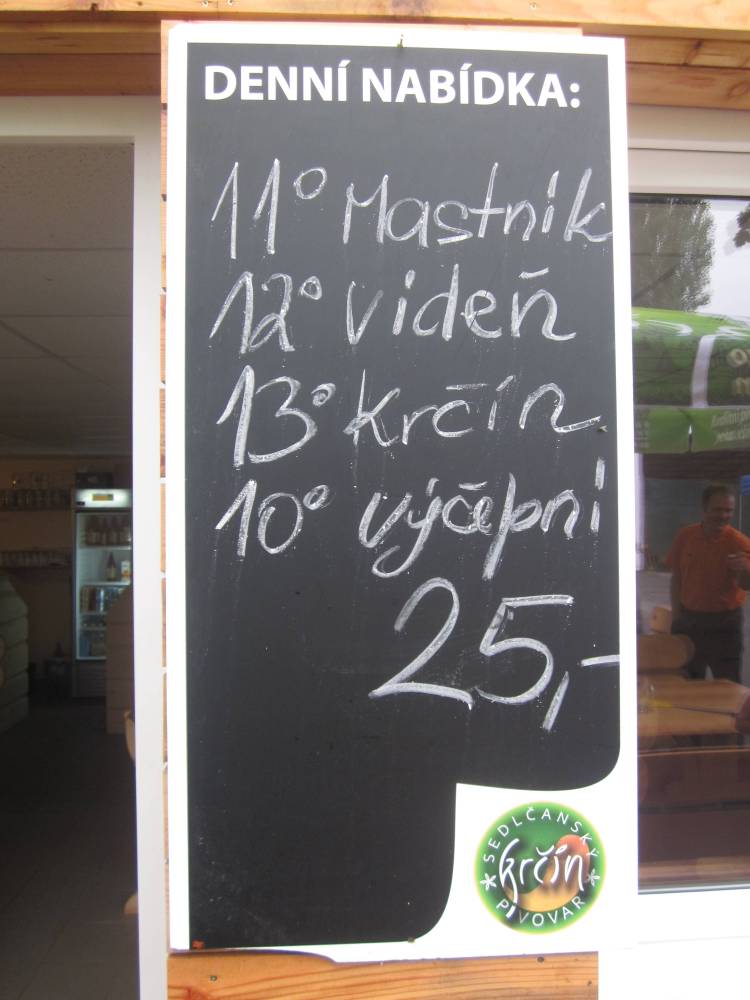 DENNÍ NABÍDKA:
11° Mastník
12° Videň
13° Krčín
10° Výčepni
25,-
SEDLČANSKÝ
krčín
PIVOVAR